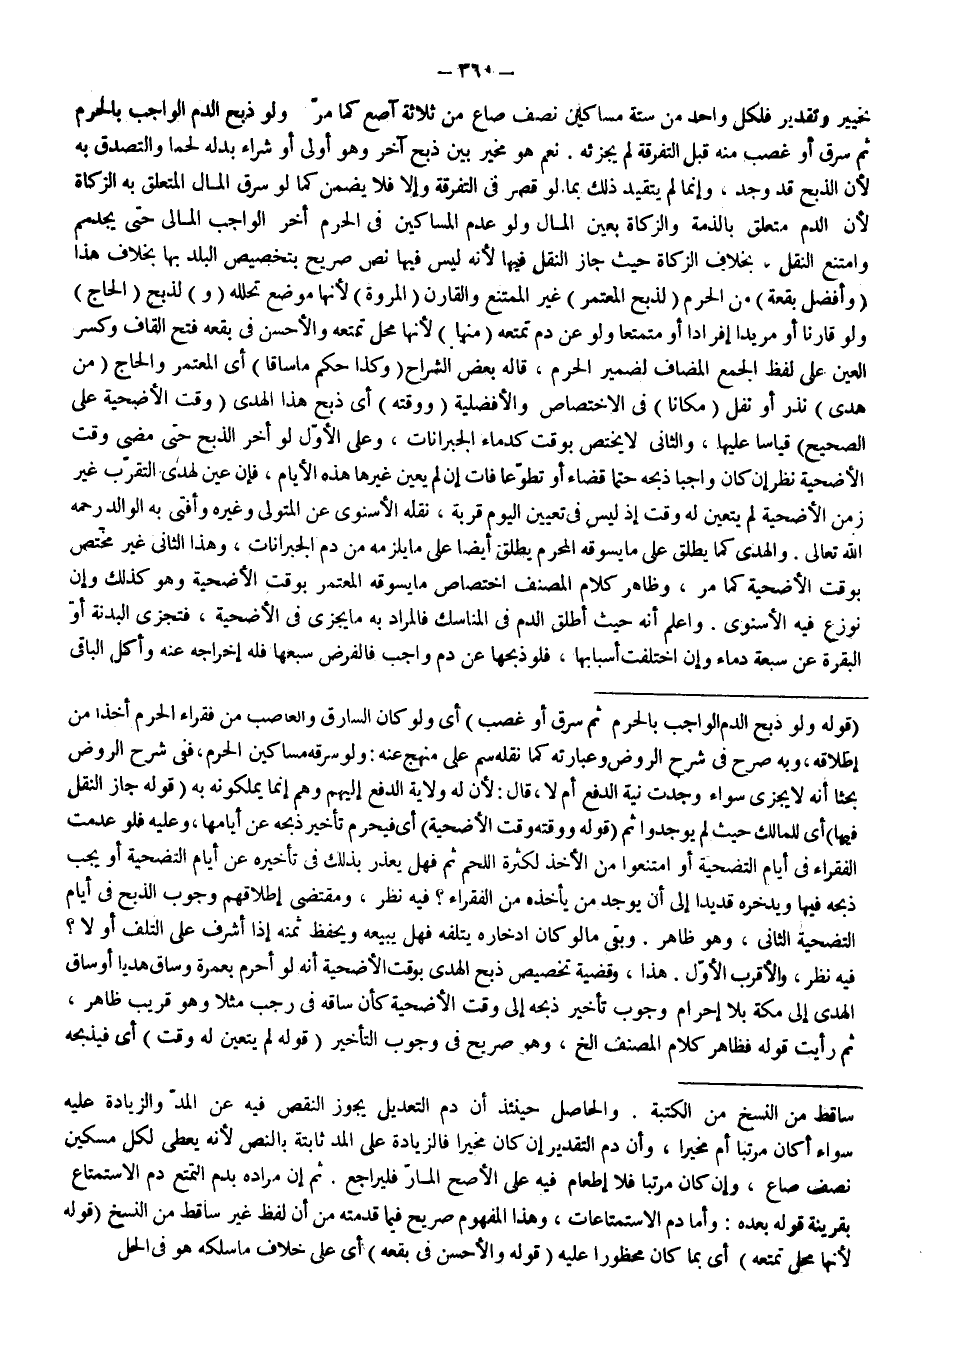 — ٣٦٠ —
تخيير وتقدير فلكل واحد من ستة مساكين نصف صاع من ثلاثة آصع كما مرّ ولو ذبح الدم الواجب بالحرم
ثم سرق أو غصب منه قبل التفرقة لم يجزئه . نعم هو مخير بين ذبح آخر وهو أولى أو شراء بدله لحما والتصدق به
لأن الذبح قد وجد ، وإنما لم يتقيد ذلك بما لو قصر فى التفرقة وإلا فلا يضمن كما لو سرق المال المتعلق به الزكاة
لأن الدم متعلق بالذمة والزكاة بعين المال ولو عدم المساكين فى الحرم أخر الواجب المالى حتى يجدهم
وامتنع النقل ، بخلاف الزكاة حيث جاز النقل فيها لأنه ليس فيها نص صريح بتخصيص البلد بها بخلاف هذا
( وأفضل بقعة ) من الحرم ( لذبح المعتمر ) غير الممتنع والقارن ( المروة ) لأنها موضع تحلله ( و ) لذبح ( الحاج )
ولو قارنا أو مريدا إفرادا أو متمتعا ولو عن دم تمتعه ( منها ) لأنها محل تمتعه والأحسن فى بقعه فتح القاف وكسر
العين على لفظ الجمع المضاف لضمير الحرم ، قاله بعض الشراح ( وكذا حكم ماساقا ) أى المعتمر والحاج ( من
هدى ) نذر أو نفل ( مكانا ) فى الاختصاص والأفضلية ( ووقته ) أى ذبح هذا الهدى ( وقت الأضحية على
الصحيح) قياسا عليها ، والثانى لايختص بوقت كدماء الجبرانات ، وعلى الأوّل لو أخر الذبح حتى مضى وقت
الأضحية نظر إن كان واجبا ذبحه حتما قضاء أو تطوّعا فات إن لم يعين غيرها هذه الأيام ، فإن عين لهدى التقرّب غير
زمن الأضحية لم يتعين له وقت إذ ليس فى تعيين اليوم قربة ، نقله الأسنوى عن المتولى وغيره وأفتى به الوالد رحمه
الله تعالى . والهدى كما يطلق على مايسوقه المحرم يطلق أيضا على مايلزمه من دم الجبرانات ، وهذا الثانى غير مختص
بوقت الأضحية كما مر ، وظاهر كلام المصنف اختصاص مايسوقه المعتمر بوقت الأضحية وهو كذلك وإن
نوزع فيه الأسنوى . واعلم أنه حيث أطلق الدم فى المناسك فالمراد به مايجزى فى الأضحية ، فتجزى البدنة أو
البقرة عن سبعة دماء وإن اختلفت أسبابها ، فلو ذبحها عن دم واجب فالفرض سبعها فله إخراجه عنه وأكل الباقى
(قوله ولو ذبح الدم الواجب بالحرم ثم سرق أو غصب ) أى ولو كان السارق والغاصب من فقراء الحرم أخذا من
إطلاقه ، وبه صرح فى شرح الروض وعبارته كما نقله سم على منهج عنه : ولو سرقه مساكين الحرم ، ففى شرح الروض
بحثا أنه لايجزى سواء وجدت نية الدفع أم لا ، قال : لأن له ولاية الدفع إليهم وهم إنما يملكونه به ( قوله جاز النقل
فيها) أى للمالك حيث لم يوجدوا ثم (قوله ووقته وقت الأضحية) أى فيحرم تأخير ذبحه عن أيامها ، وعليه فلو عدمت
الفقراء فى أيام التضحية أو امتنعوا من الأخذ لكثرة اللحم ثم فهل يعذر بذلك فى تأخيره عن أيام التضحية أو يجب
ذبحه فيها ويدخره قديدا إلى أن يوجد من يأخذه من الفقراء ؟ فيه نظر ، ومقتضى إطلاقهم وجوب الذبح فى أيام
التضحية الثانى ، وهو ظاهر . وبقى مالو كان ادخاره يتلفه فهل يبيعه ويحفظ ثمنه إذا أشرف على التلف أو لا ؟
فيه نظر ، والأقرب الأوّل . هذا ، وقضية تخصيص ذبح الهدى بوقت الأضحية أنه لو أحرم بعمرة وساق هديا أو ساق
الهدى إلى مكة بلا إحرام وجوب تأخير ذبحه إلى وقت الأضحية كأن ساقه فى رجب مثلا وهو قريب ظاهر ،
ثم رأيت قوله فظاهر كلام المصنف الخ ، وهو صريح فى وجوب التأخير ( قوله لم يتعين له وقت ) أى فيذبحه
ساقط من النسخ من الكتبة . والحاصل حينئذ أن دم التعديل يجوز النقص فيه عن المدّ والزيادة عليه
سواء أكان مرتبا أم مخيرا ، وأن دم التقدير إن كان مخيرا فالزيادة على المد ثابتة بالنص لأنه يعطى لكل مسكين
نصف صاع ، وإن كان مرتبا فلا إطعام فيه على الأصح المارّ فليراجع . ثم إن مراده بدم التمتع دم الاستمتاع
بقرينة قوله بعده : وأما دم الاستمتاعات ، وهذا المفهوم صريح فيما قدمته من أن لفظ غير ساقط من النسخ (قوله
لأنها محل تمتعه ) أى بما كان محظورا عليه ( قوله والأحسن فى بقعه ) أى على خلاف ماسلكه هو فى الحل